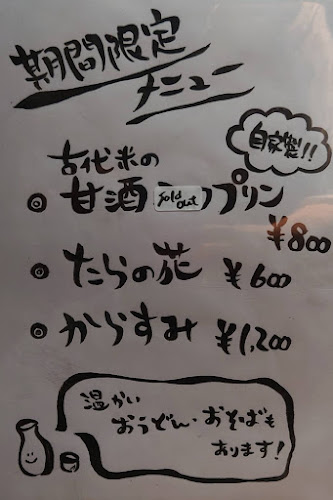 期間限定
メニュー
自家製!!
古代米の
◎甘酒 Sold out プリン
¥800
◎たらの花 ¥600
◎からすみ ¥1,200
温かい
おうどん・おそばも
あります!